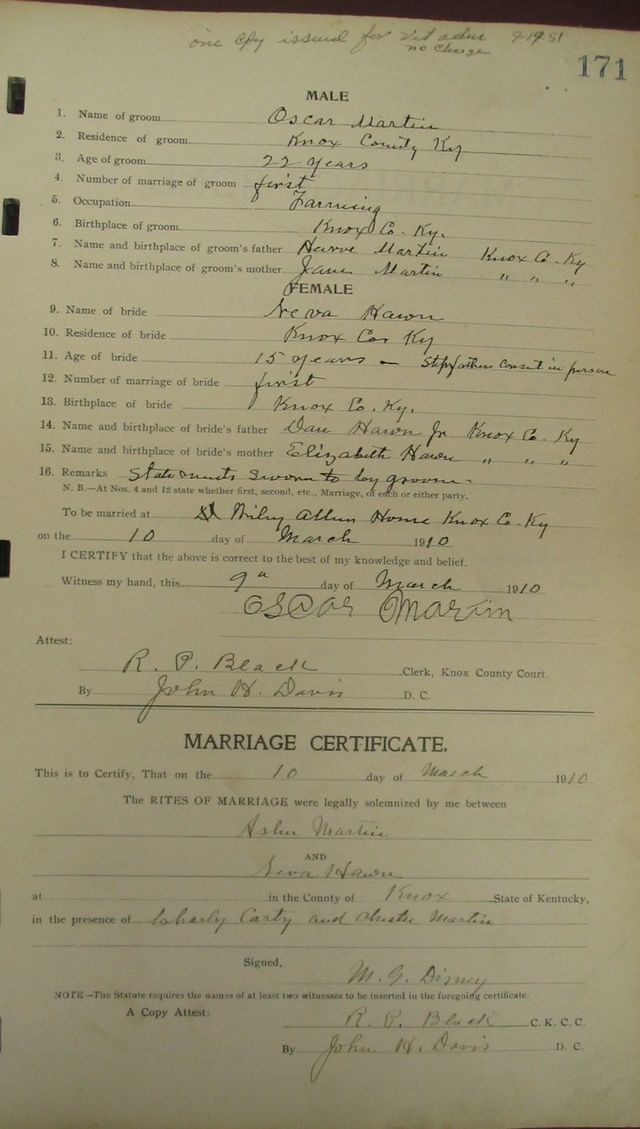 one cpy issued for Vet adm 9-19-51
no charge
171
MALE
1. Name of groom Oscar Martin
2. Residence of groom Knox County Ky
3. Age of groom 22 years
4. Number of marriage of groom first
5. Occupation Farming
6. Birthplace of groom Knox Co. Ky.
7. Name and birthplace of groom's father Harve Martin Knox Co. Ky
8. Name and birthplace of groom's mother Jane Martin " " "
FEMALE
9. Name of bride Neva Hawn
10. Residence of bride Knox Co. Ky
11. Age of bride 15 years – Stepfathers Consent in person
12. Number of marriage of bride first
13. Birthplace of bride Knox Co. Ky.
14. Name and birthplace of bride's father Dan Hawn Jr Knox Co. Ky
15. Name and birthplace of bride's mother Elizabeth Hawn " " "
16. Remarks Statements sworn to by groom -
N. B.—At Nos. 4 and 12 state whether first, second, etc., Marriage, of each or either party.
To be married at Wiley Allen Home Knox Co. Ky
on the 10 day of March 1910
I CERTIFY that the above is correct to the best of my knowledge and belief.
Witness my hand, this 9 day of March 1910
Oscar Martin
Attest:
R. P. Black Clerk, Knox County Court.
By John H. Davis D. C.
MARRIAGE CERTIFICATE.
This is to Certify, That on the 10 day of March 1910
The RITES OF MARRIAGE were legally solemnized by me between
Martin
AND
Neva Hawn
at in the County of Knox State of Kentucky,
in the presence of Charly Carty and Martin
Signed,
M. G. Disney
NOTE—The Statute requires the names of at least two witnesses to be inserted in the foregoing certificate.
A Copy Attest: R. P. Black C. K. C. C.
By John H. Davis D. C.